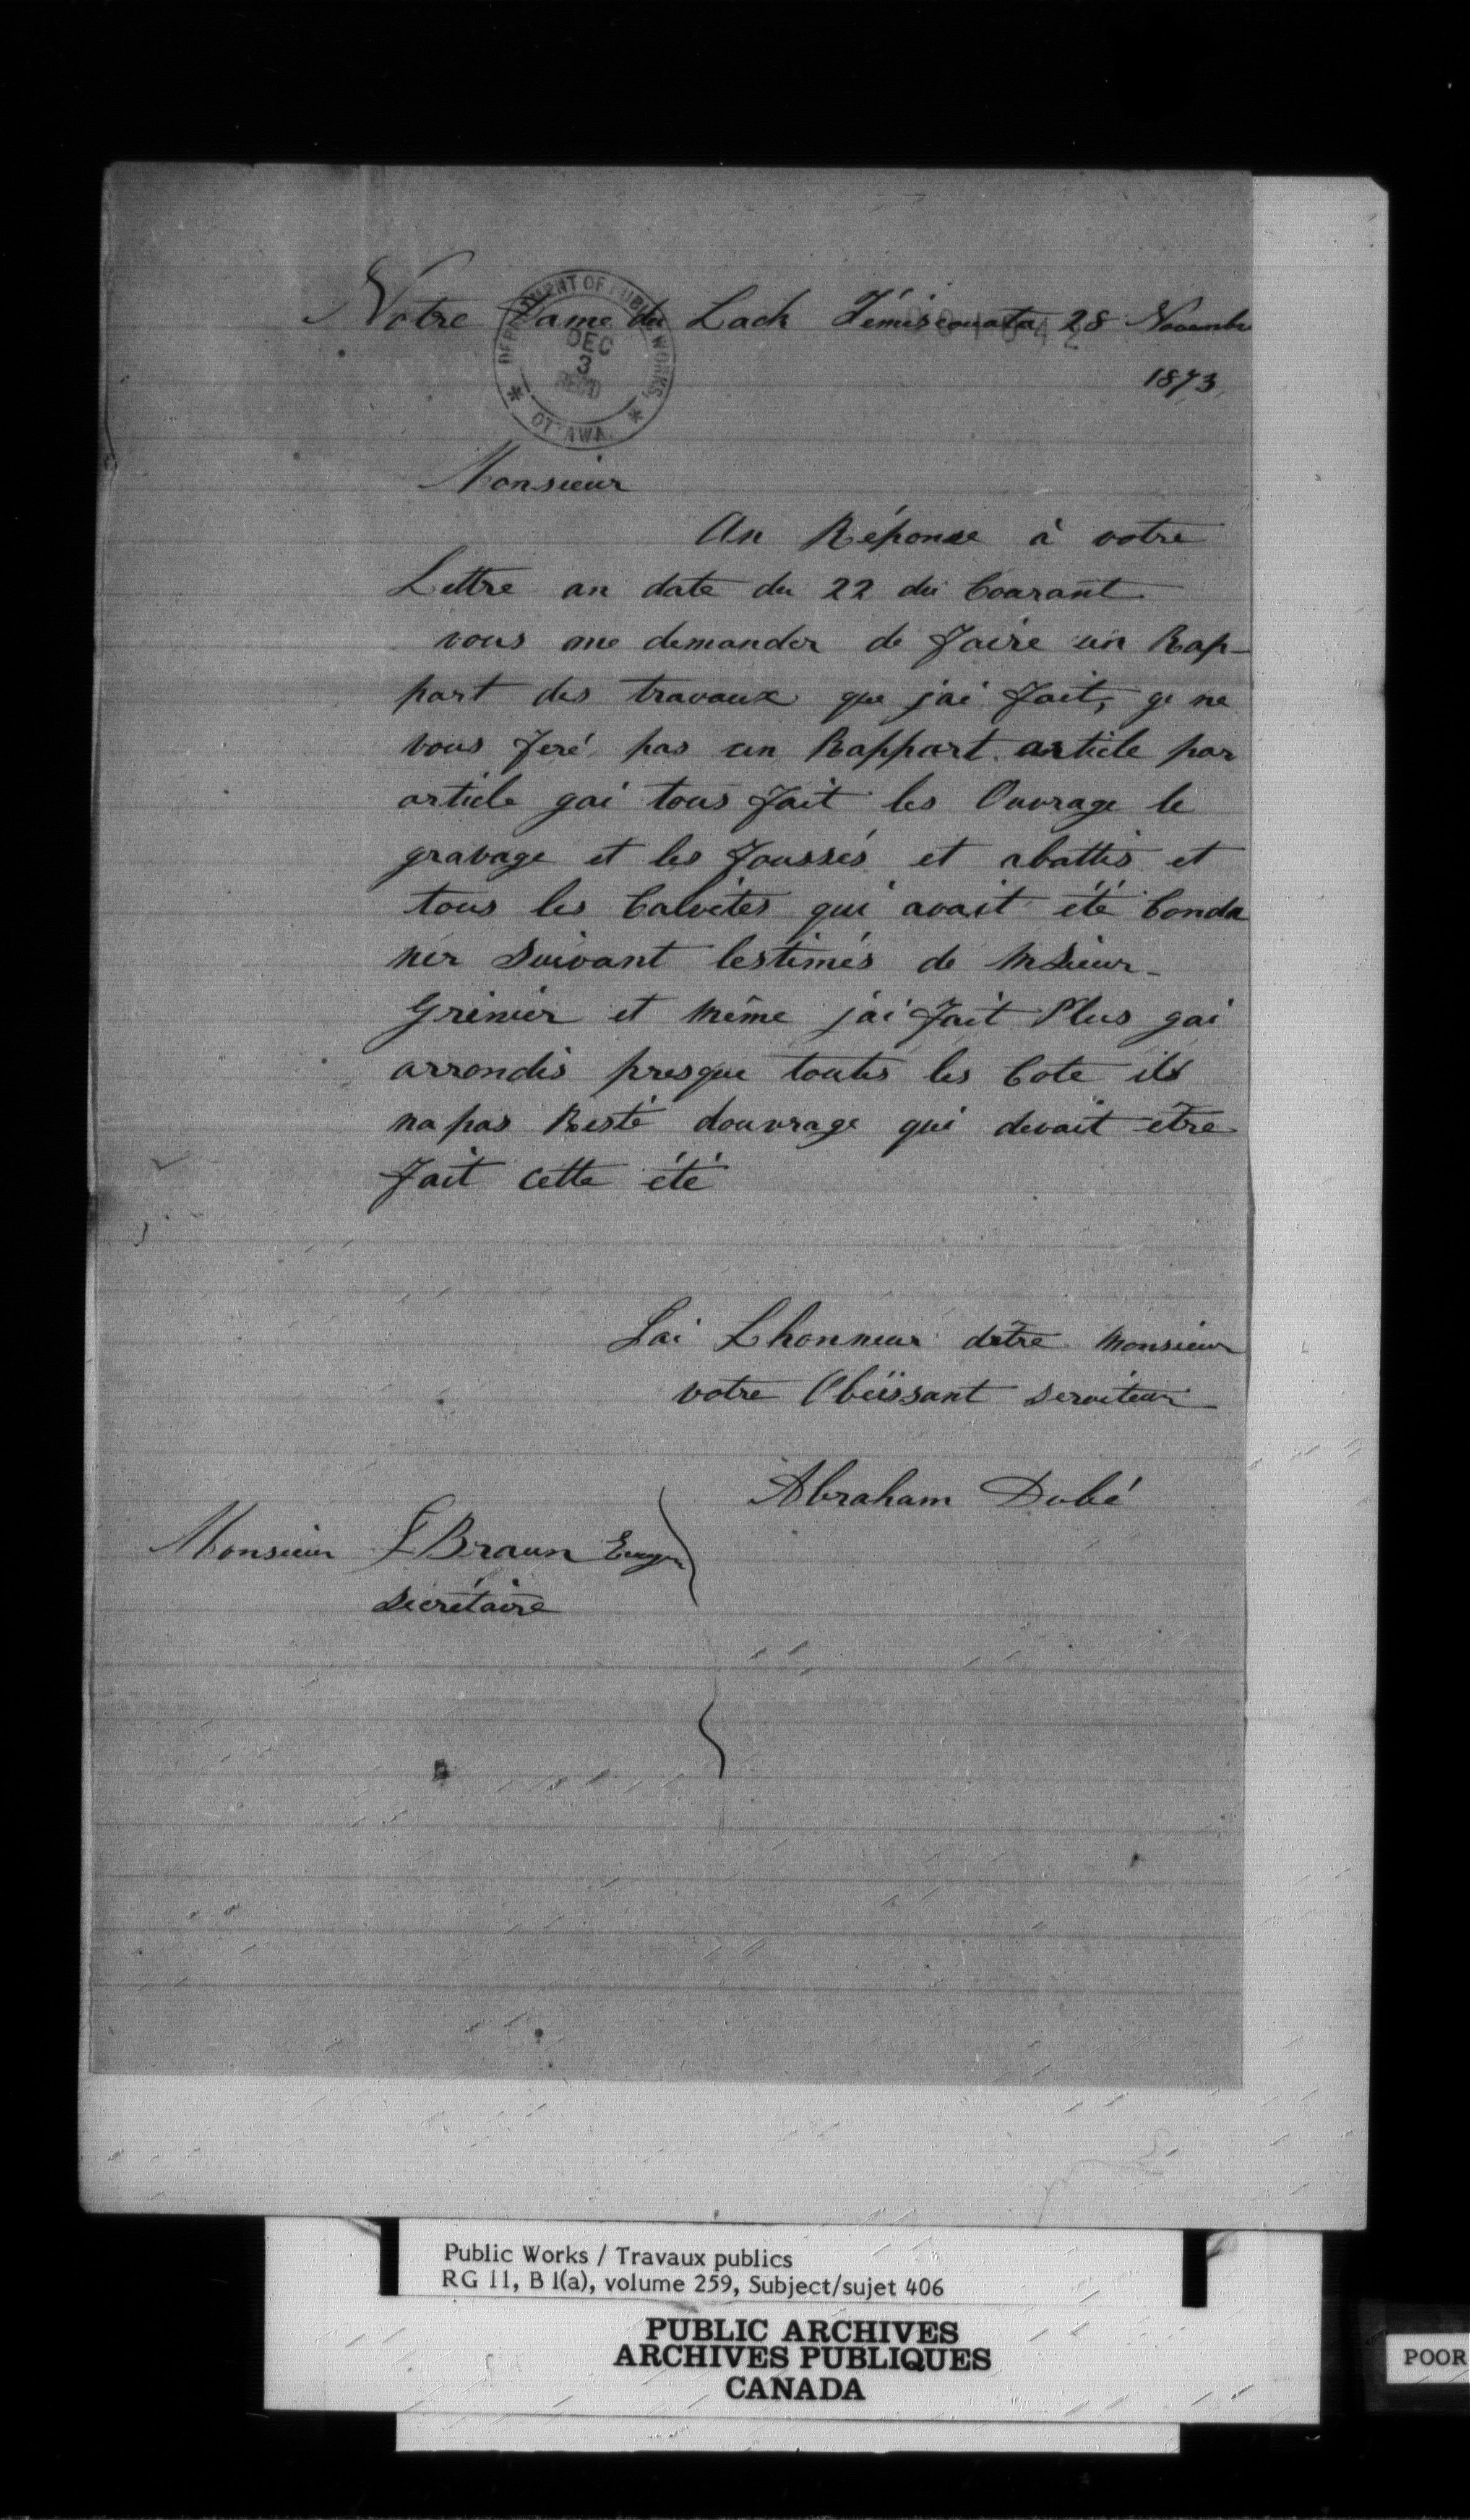 Notre Dame du Lack Témiscouata 28 Novembre
1873
DEPARTMENT OF PUBLIC WORKS,
DEC
3
REC'D
OTTAWA
Monsieur
An Réponse à votre
Lettre an date du 22 du Courant
vous me demander de faire un Rap-
part des travaux que jai fait, ge ne
vous feré pas un Rappart article par
article gai tous fait les Ouvrage le
gravage et les foussés et abattis et
tous les Calvètes qui avait été Conda
ner Suivant lestimés de Msieur
Grinier et même jai fait Plus gai
arrondis presque toutes les Cote ils
na pas Resté douvrage qui devait être
fait cette été
Jai Lhonneur dètre Monsieur
votre Obéissant Serviteur
Abraham Dubé
Monsieur F Braun
Secrétaire
Public Works / Travaux publics
RG 11, B 1(a), volume 259, Subject/sujet 406
PUBLIC ARCHIVES
ARCHIVES PUBLIQUES
CANADA
POOR